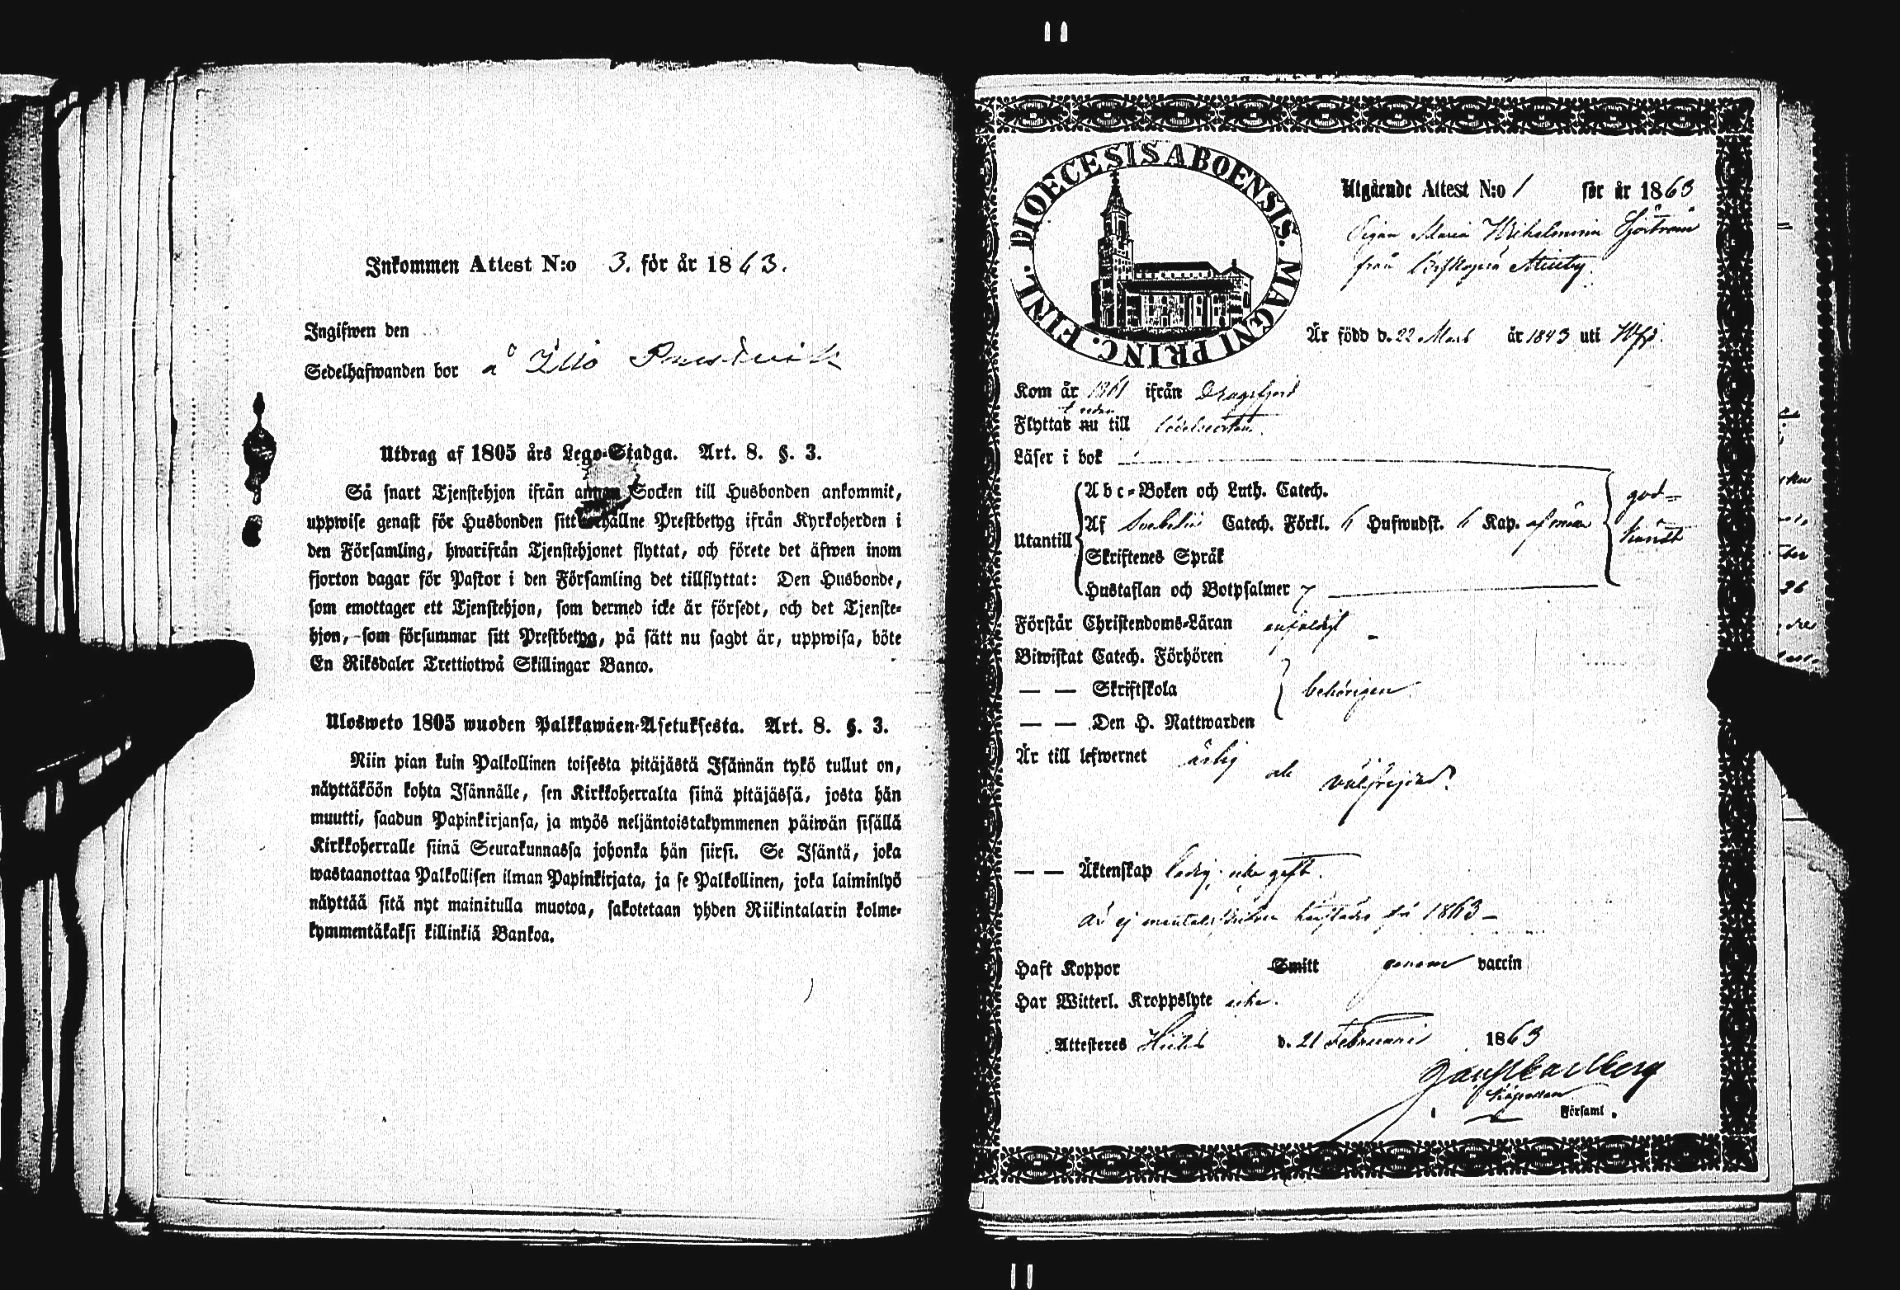 Inkommen Attest N:o 3. för år 1863.
Ingifwen den
Sedelhafwanden bor å Illo
Utdrag af 1805 års Lego-Stadga. Art. 8. §. 3.
Så snart Tjenstehjon ifrån annan Socken till Husbonden ankommit,
uppwise genast för Husbonden sitt erhållne Prestbetyg ifrån Kyrkoherden i
den Församling, hwarifrån Tjenstehjonet flyttat, och förete det äfwen inom
fjorton dagar för Pastor i den Församling det tillflyttat: Den Husbonde,
som emottager ett Tjenstehjon, som dermed icke är försedt, och det Tjenste-
hjon, som försummar sitt Prestbetyg, på sätt nu sagdt är, uppwisa, böte
En Riksdaler Trettiotwå Skillingar Banco.
Ulosweto 1805 wuoden Palkkawäen-Asetuksesta. Art. 8. §. 3.
Niin pian kuin Palkollinen toisesta pitäjästä Isännän tykö tullut on,
näyttäköön kohta Isännälle, sen Kirkkoherralta siinä pitäjässä, josta hän
muutti, saadun Papinkirjansa, ja myös neljäntoistakymmenen päiwän sisällä
Kirkkoherralle siinä Seurakunnassa johonka hän siirsi. Se Isäntä, joka
wastaanottaa Palkollisen ilman Papinkirjata, ja se Palkollinen, joka laiminlyö
näyttää sitä nyt mainitulla muotoa, sakotetaan yhden Riikintalarin kolme-
kymmentäkaksi killinkiä Bankoa.
DIOECESIS ABOENSIS. MAGNI PRINC. FINL.
Utgående Attest N:o 1 för år 1863
Pigan Maria Wilhelmina
från
Är född d. 22 Mars år 1843 uti
Kom år 1861 ifrån Dragsfjerd
Flyttat nu till
Läser i bok
Utantill
Abc-Boken och Luth. Catech.
Af Svebilii Catech. Förkl. 6 Hufwudst. 6 Kap.
Skriftenes Språk
Hustaflan och Botpsalmer 7
god-
kändt
Förstår Christendoms-Läran enfaldigt
Biwistat Catech. Förhören
— — Skriftskola
— — Den H. Nattwarden
behörigen
Är till lefwernet ärlig och välfrejdad
— — Äktenskap ledig, icke gift.
är ej mantalsskriven härstädes för 1863 —
Haft Koppor Smitt genom vaccin
Har Witterl. Kroppslyte icke.
Attesteras Hitis d. 21 Februari 1863
Kapellan
Församl.